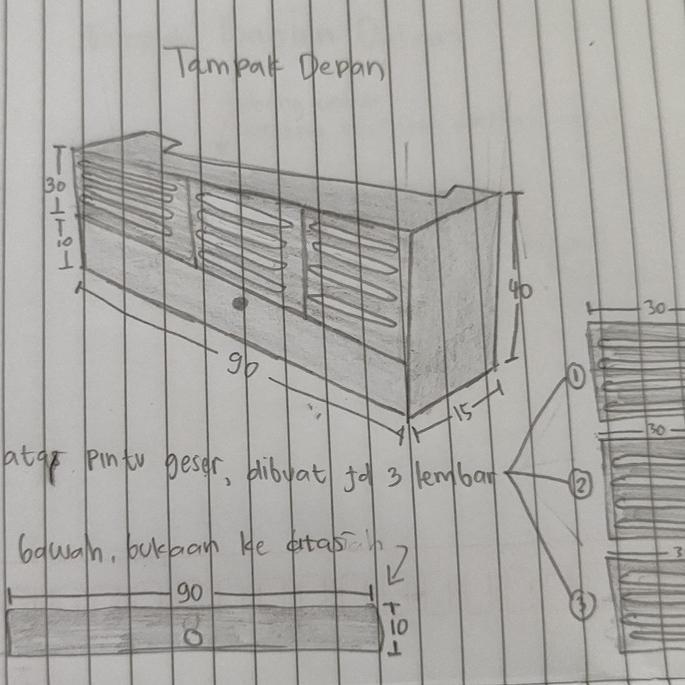 Tampak Depan
30
10
40
90
15
30
atas pintu geser, dibuat jd 3 lembar
1
30
2
bawah, bukaan ke atas
3
90
10
3